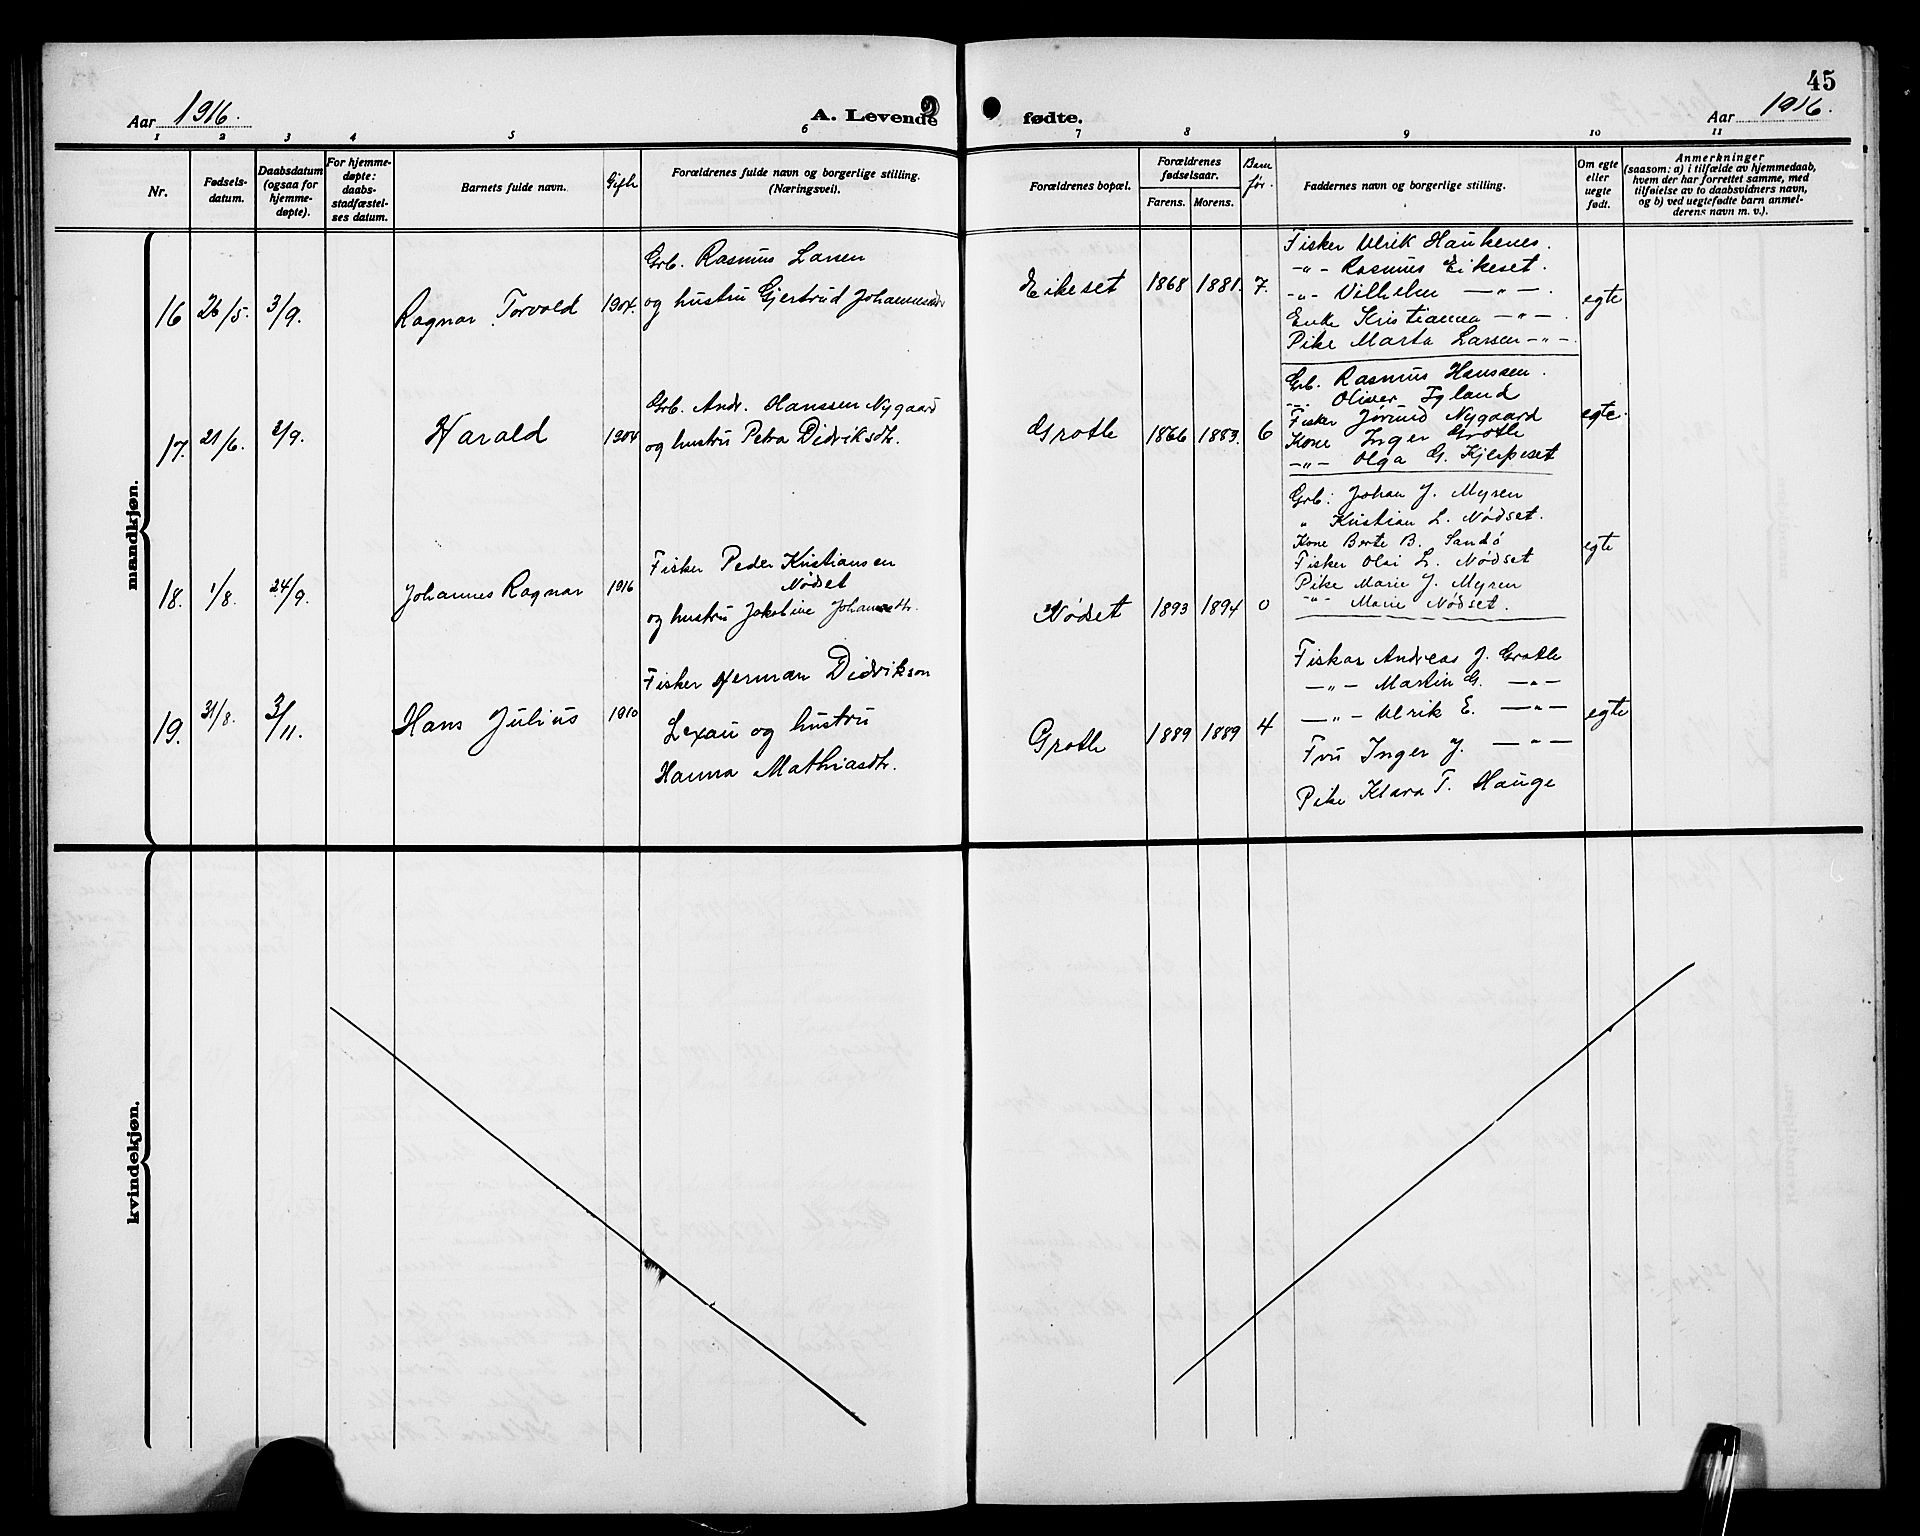 45
Aar 1916.
A. Levende fødte.
Aar 1916.
1 2 3 4 5 6 7 8 9 10 11
Nr.
Fødsels-
datum.
Daabsdatum
(ogsaa for
hjemme-
døpte).
For hjemme-
døpte:
daabs-
stadfæstel-
ses datum.
Barnets fulde navn.
Gift
Forældrenes fulde navn og borgerlige stilling.
(Næringsvei).
Forældrenes bopæl.
Forældrenes
fødselsaar.
Farens. Morens.
Barn
før.
Faddernes navn og borgerlige stilling.
Om egte
eller
uegte
født.
Anmerkninger
(saasom: a) i tilfælde av hjemmedaab,
hvem der har forrettet samme, med
tilføielse av to daabsvidners navn,
og b) ved uegtefødte barn anmel-
derens navn m. v.).
mandkjøn.
16 26/5. 3/9. Ragnar Torvald 1904.
Grb. Rasmus Larsen
og hustru Gjertrud Johannesdtr
Eikeset 1868 1881. 7.
Fisker Ulrik Haukenes.
-"- Rasmus Eikeset.
-"- Vilhelm -"-.
Enke Kristianna -"-.
Pike Marta Larsen -"-
egte
17. 21/6. 2/9. Harald 1904
Grb. Andr. Hanssen Nygaard
og hustru Petra Didriksdtr.
Grotle 1866 1883. 6
Grb. Rasmus Hanssen.
-"- Oliver Igland
Fisker Jørund Nygaard
Kone Inger Grotle
-"- Olga G. Kjerpeset
egte.
18. 1/8. 24/9. Johannes Ragnar 1916
Fisker Peder Kristiansen
Nødset
og hustru Jakobine Johansdtr.
Nødset 1893 1894 0
Grb: Johan J. Myren
" Kristian L. Nødset.
Kone Berte B. Sandö
Fisker Olai L. Nødset
Pike Marie J. Myren
-"- Marie Nødset.
egte
19. 31/8. 3/11. Hans Julius 1910
Fisker Herman Didrikson
Lexau og hustru
Hanna Mathiasdtr.
Grotle 1889 1889 4
Fiskar Andreas J. Grotle
-"- Martin G. -"-
-"- Ulrik E. -"-
Fru Inger J. -"-
Pike Klara T. Hauge
egte
kvindekjøn.